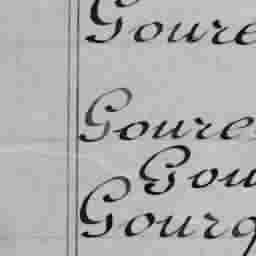 Goure
Goure
Gou
Gourg